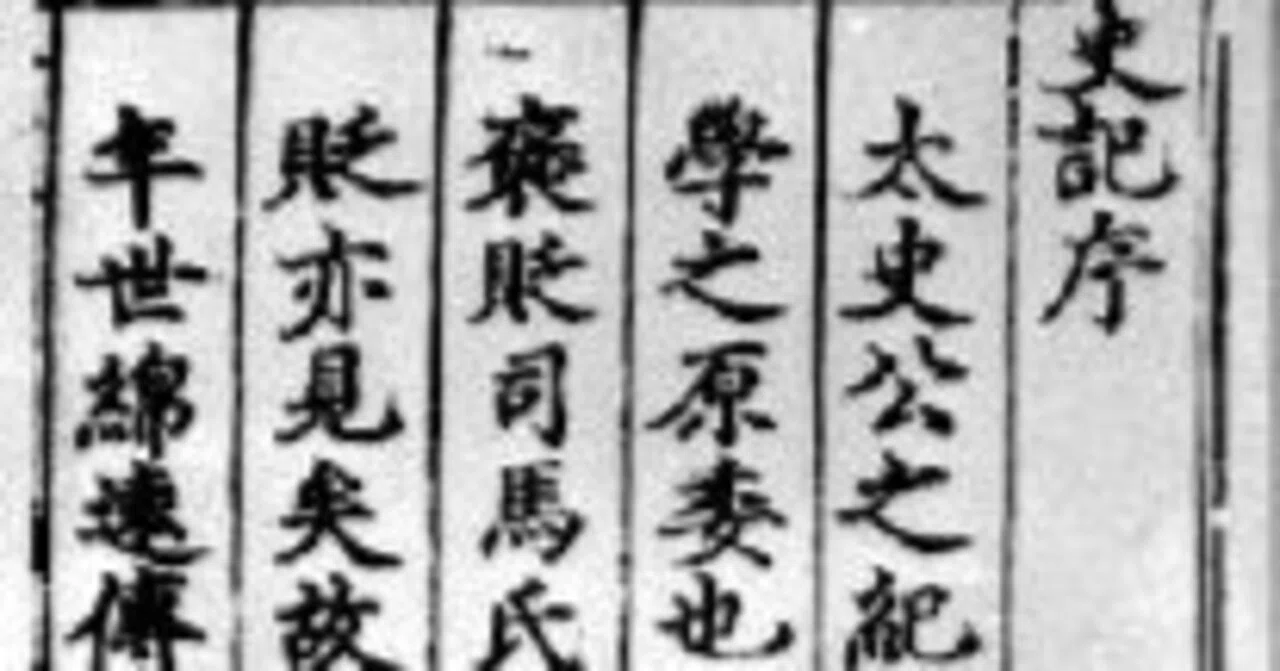 史記序
太史公之紀
學之原委也
褒貶司馬氏
貶亦見矣故
年世綿遠傳